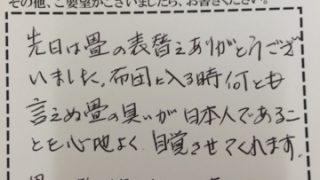 その他、ご要望がございましたら、お書きください。
先日は畳の表替えありがとうござ
いました。布団に入る時何とも
言えぬ畳の臭いが日本人であるこ
とを心地よく、目覚させてくれます。